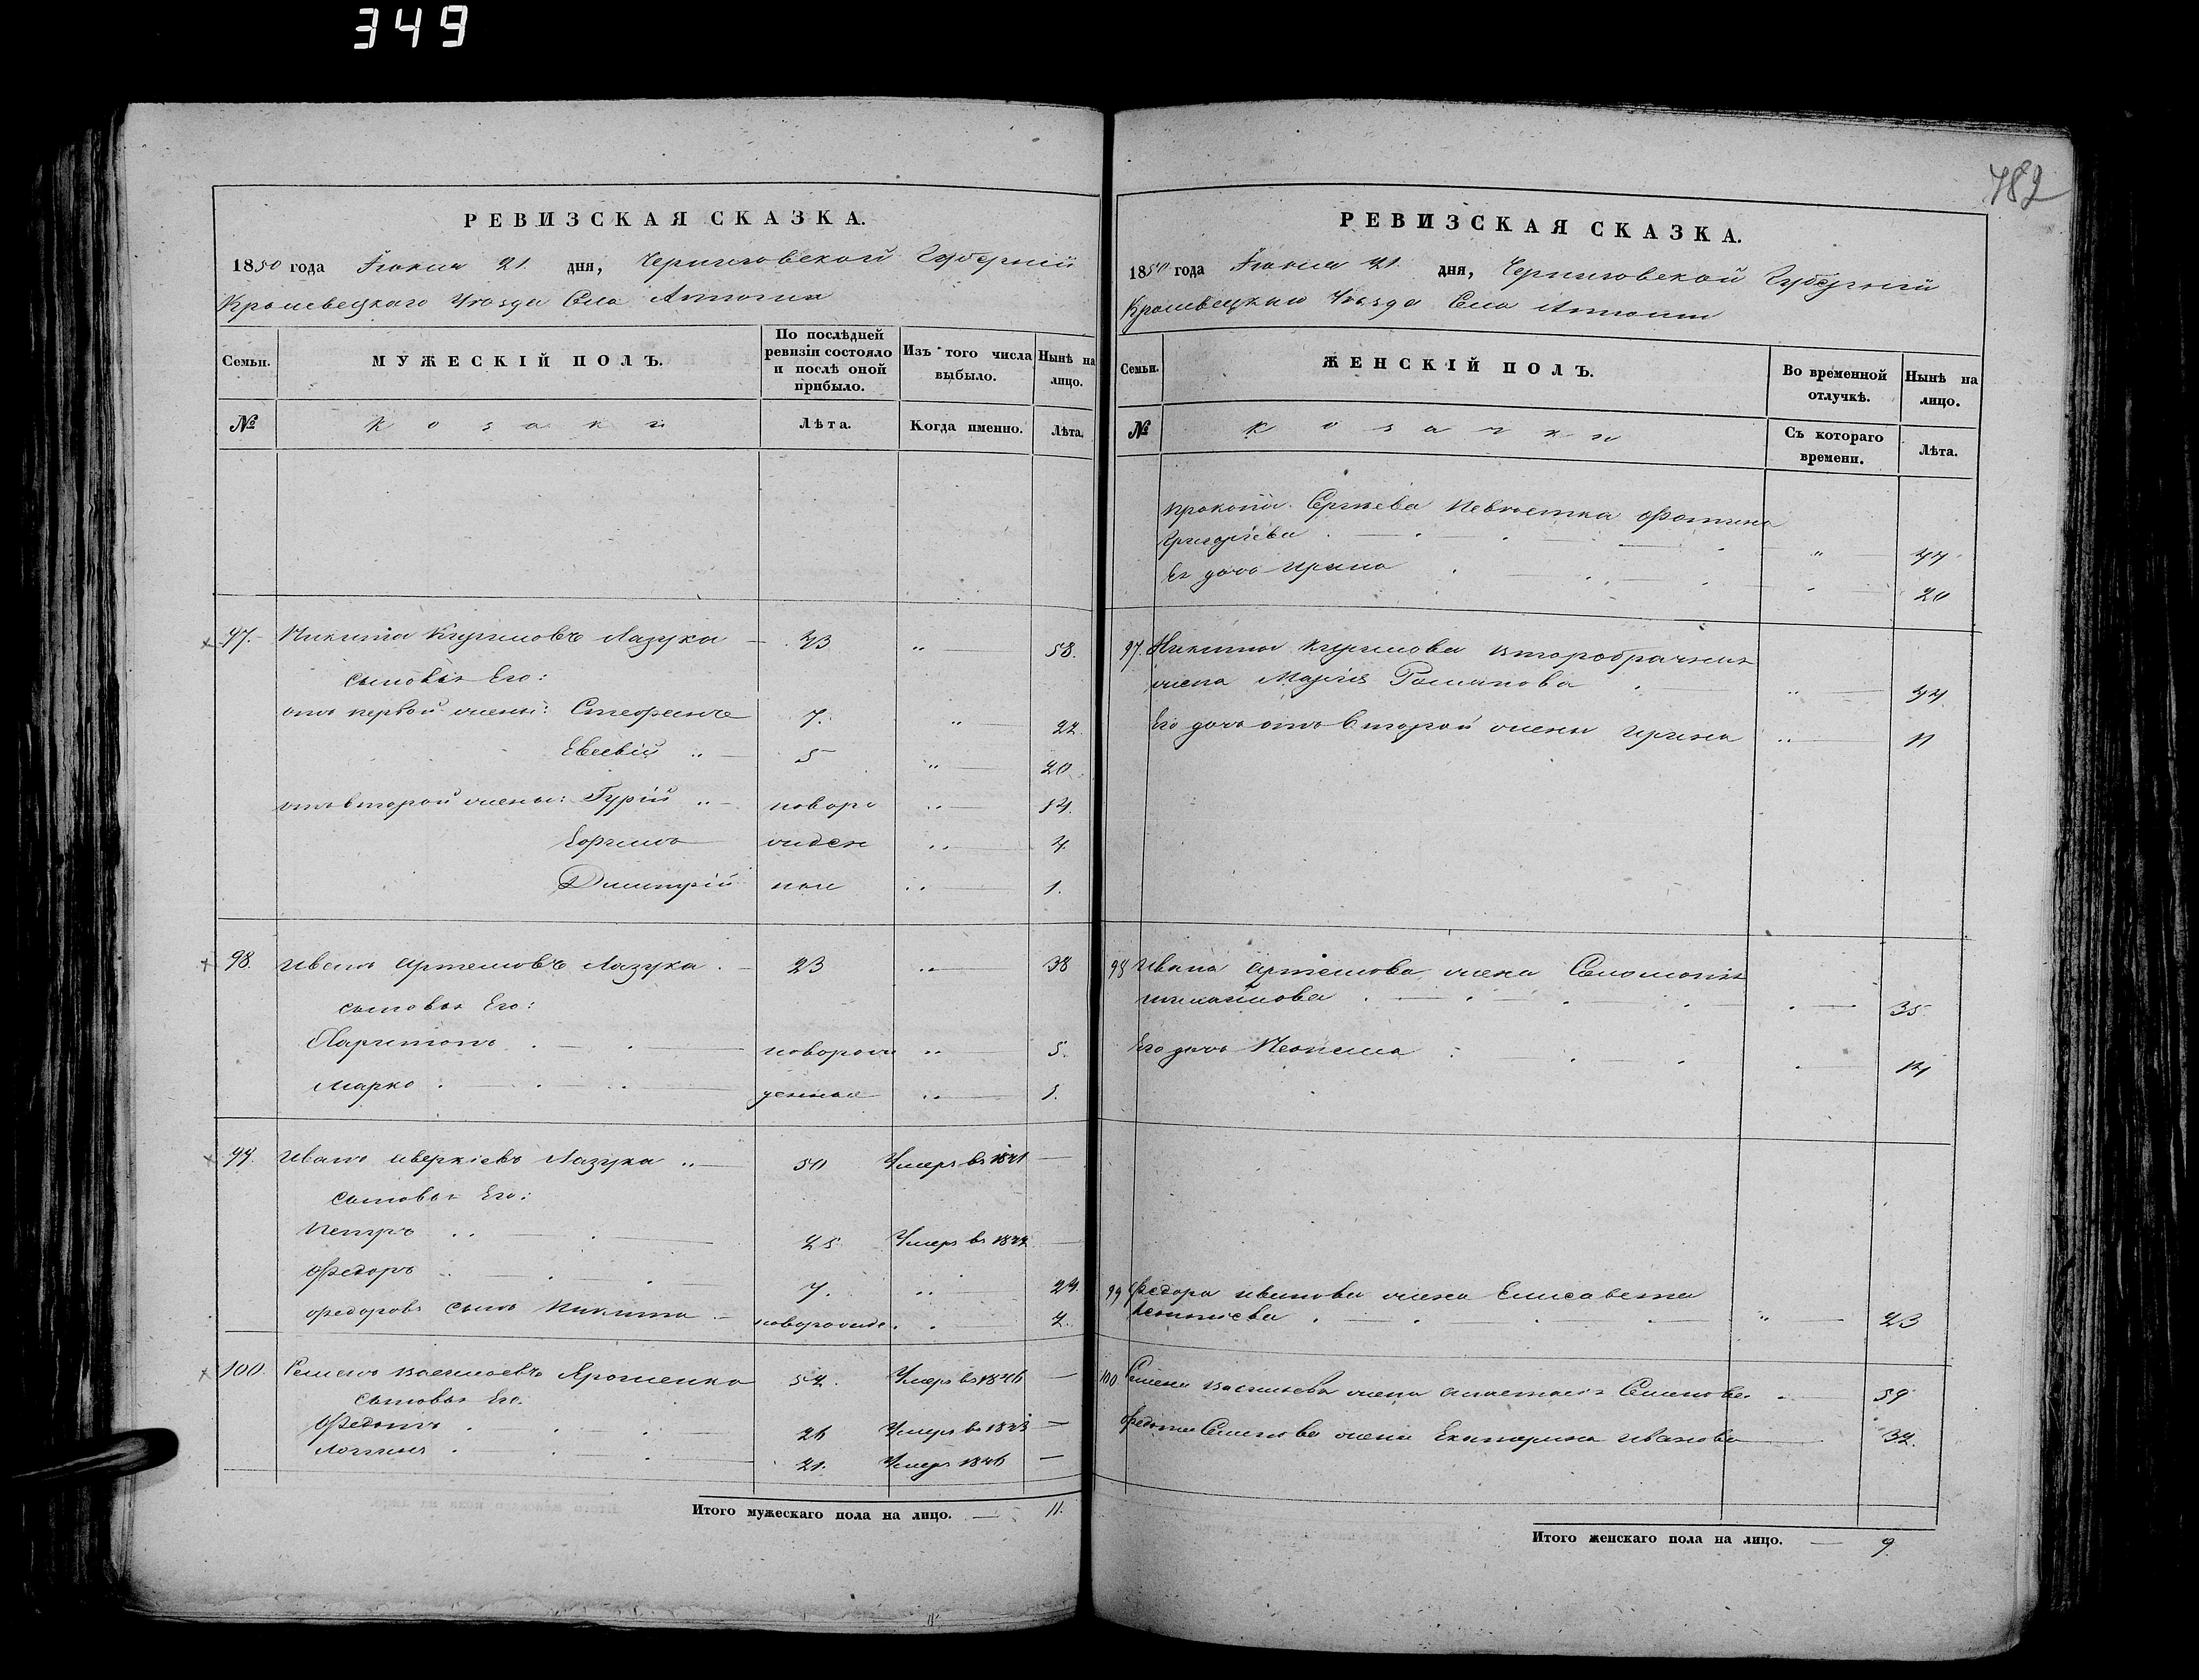 349
782
РЕВИЗСКАЯ СКАЗКА.
1850 года Іюня 21. дня, Черниговской Губерніи
Кролевецкаго Уѣзда Села
Семьи.
МУЖЕСКІЙ ПОЛЪ.
По послѣдней ревизіи состояло и послѣ оной прибыло.
Изъ того числа выбыло.
Нынѣ на лицо.
№
Козаки
Лѣта.
Когда именно.
Лѣта.
97. Никита Кириловъ Лазука 43 " 58.
сыновья Его:
отъ первой жены: Стефанъ 7. " 22.
Евсевій " 5 " 20
отъ второй жены: Гурій " новоро " 14.
Ефимъ жден " 4
Димитрій ные " 1.
98. Иванъ Артемовъ Лазука 23 " 38
сыновья Его:
Харитонъ новорож " 5.
Марко денные " 1.
99. Иванъ Аверкіевъ Лазука " 50 Умеръ въ 1841 —
сыновья Его:
Петръ 25 Умеръ въ —
Федоръ 7. "
Федоровъ сынъ Никита новорожде.
100. Семенъ Васильевъ Ярошенко 54. Умеръ въ 1846 —
сыновья Его.
Федотъ 26 Умеръ въ —
Логинъ 21. Умеръ 1846 —
Итого мужескаго пола на лицо. — 11.
РЕВИЗСКАЯ СКАЗКА.
1850 года Іюня 21. дня, Черниговской Губерніи
Кролевецкаго Уѣзда Села
Семьи.
ЖЕНСКІЙ ПОЛЪ.
Во временной отлучкѣ.
Нынѣ на лицо.
№
Козачки
Съ котораго времени.
Лѣта.
Прокопія Сергѣева невѣстка Фотина
Григоріева " 44
Ея дочь Ирина " 20
97. Никиты Кирилова второбрачная
жена Марія Романова " 44
Его дочь отъ второй жены Ирина " 11
98 Ивана Артемова жена Соломонія
" 35
Его дочь 14
99 Федора Иванова жена Елисавета
" 23
100 Семена Васильева жена Анастасія Семенова 59
Федота Семенова жена Екатерина Иванова 32.
Итого женскаго пола на лицо. — 9.